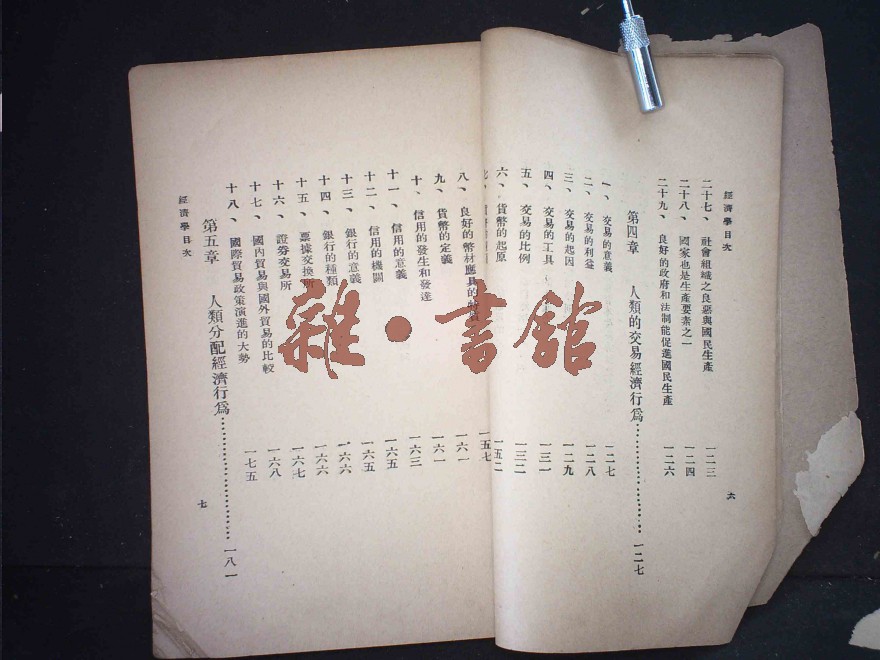 經濟學目次
六
二十七、社會組域之良惡與國民生產 一二三
二十八、國家也是生產要素之一 一二四
二十九、良好的政府和法制能促進國民生產 一二六
第四章 人類的交易經濟行爲 一二七
一、交易的意義 一二七
二、交易的利益 一二八
三、交易的起因 一二九
四、交易的工具 一三一
五、交易的比例 一三二
六、貨幣的起原 一五二
七、 一五七
八、良好的幣材應具的 一六一
九、貨幣的定義 一六一
十、信用的發生和發達 一六三
十一、信用的意義 一六五
十二、信用的機關 一六五
十三、銀行的意義 一六六
十四、銀行的種類 一六六
十五、票據交換所 一六七
十六、證券交易所 一六八
十七、國內貿易與國外貿易的比較
十八、國際貿易政策演進的大勢 一七五
第五章 人類分配經濟行爲 一八一
經濟學目次
七
雜·書館